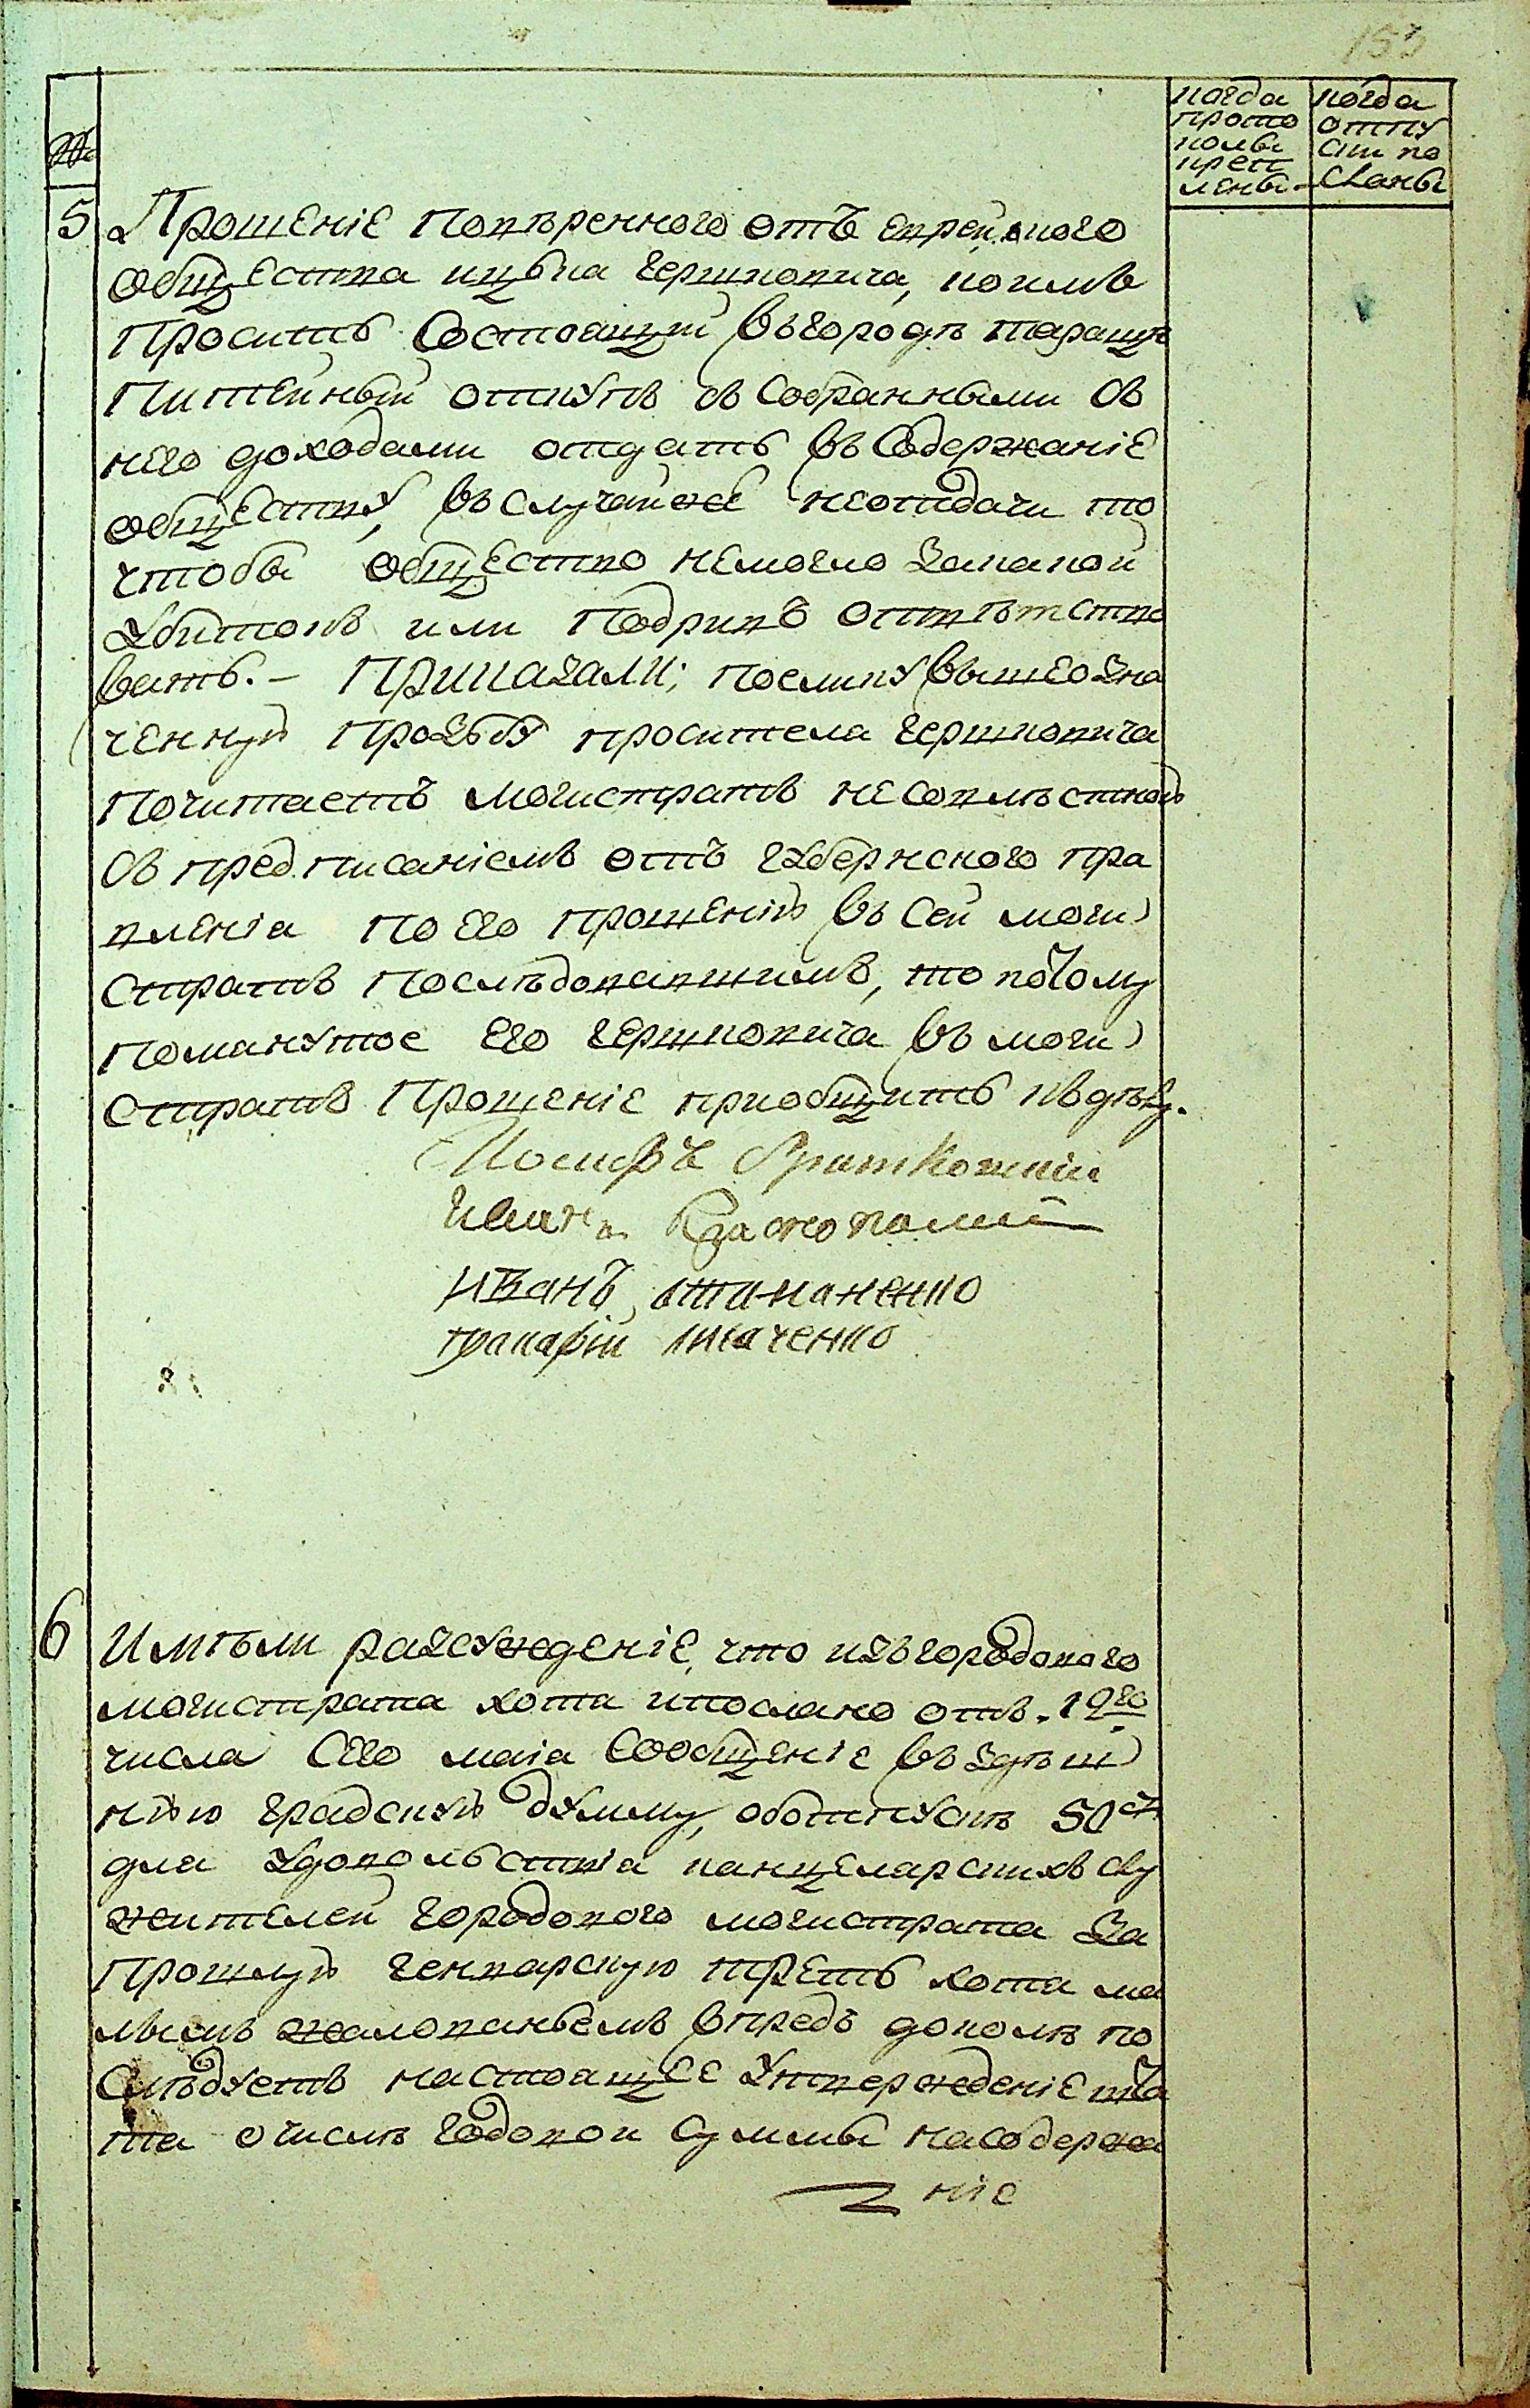 153
№
когда
прото
колы
крепле
лены
когда
отпу
ски по
сланы
5
Прошеніе повѣреннаго отъ еврейского
общества ицька гершковича, коимъ
проситъ состоящий въ городѣ таращѣ
питейный откупъ съ собранными съ
него доходами отдать въ содержаніе
обществу, въ случай же неотдачи то
чтобы общество немогло закакой
убитокъ или подривъ отвѣтство
вать. – Приказали; поелику вышеозна
ченную прозьбу просителя гершковича
почитаетъ магистратъ несовмѣстною
съ предписаніемъ отъ губернского пра
вленія по его прошенію въ сей маги
стратъ послѣдовавшимъ, то потому
помянутое его гершковича въ маги
стратъ прошеніе приобщить къ дѣлу.
Иосифъ
Иванъ
иванъ
ткаченко
6
Имѣли разсужденіе, что изъ городового
магистрата хотя и послано отъ 19го
числа сего маія сообщеніе въ здѣш
нюю градскую думму, оботпускѣ 50
для удовольствія канцелярскихъ слу
жителей городового магистрата за
прошлую генварскую треть хотя ма
лымъ жалованьемъ впредь доколѣ по
слѣдуетъ настоящее утвержденіе шта
та очислѣ годовой суммы насодержа
ніе